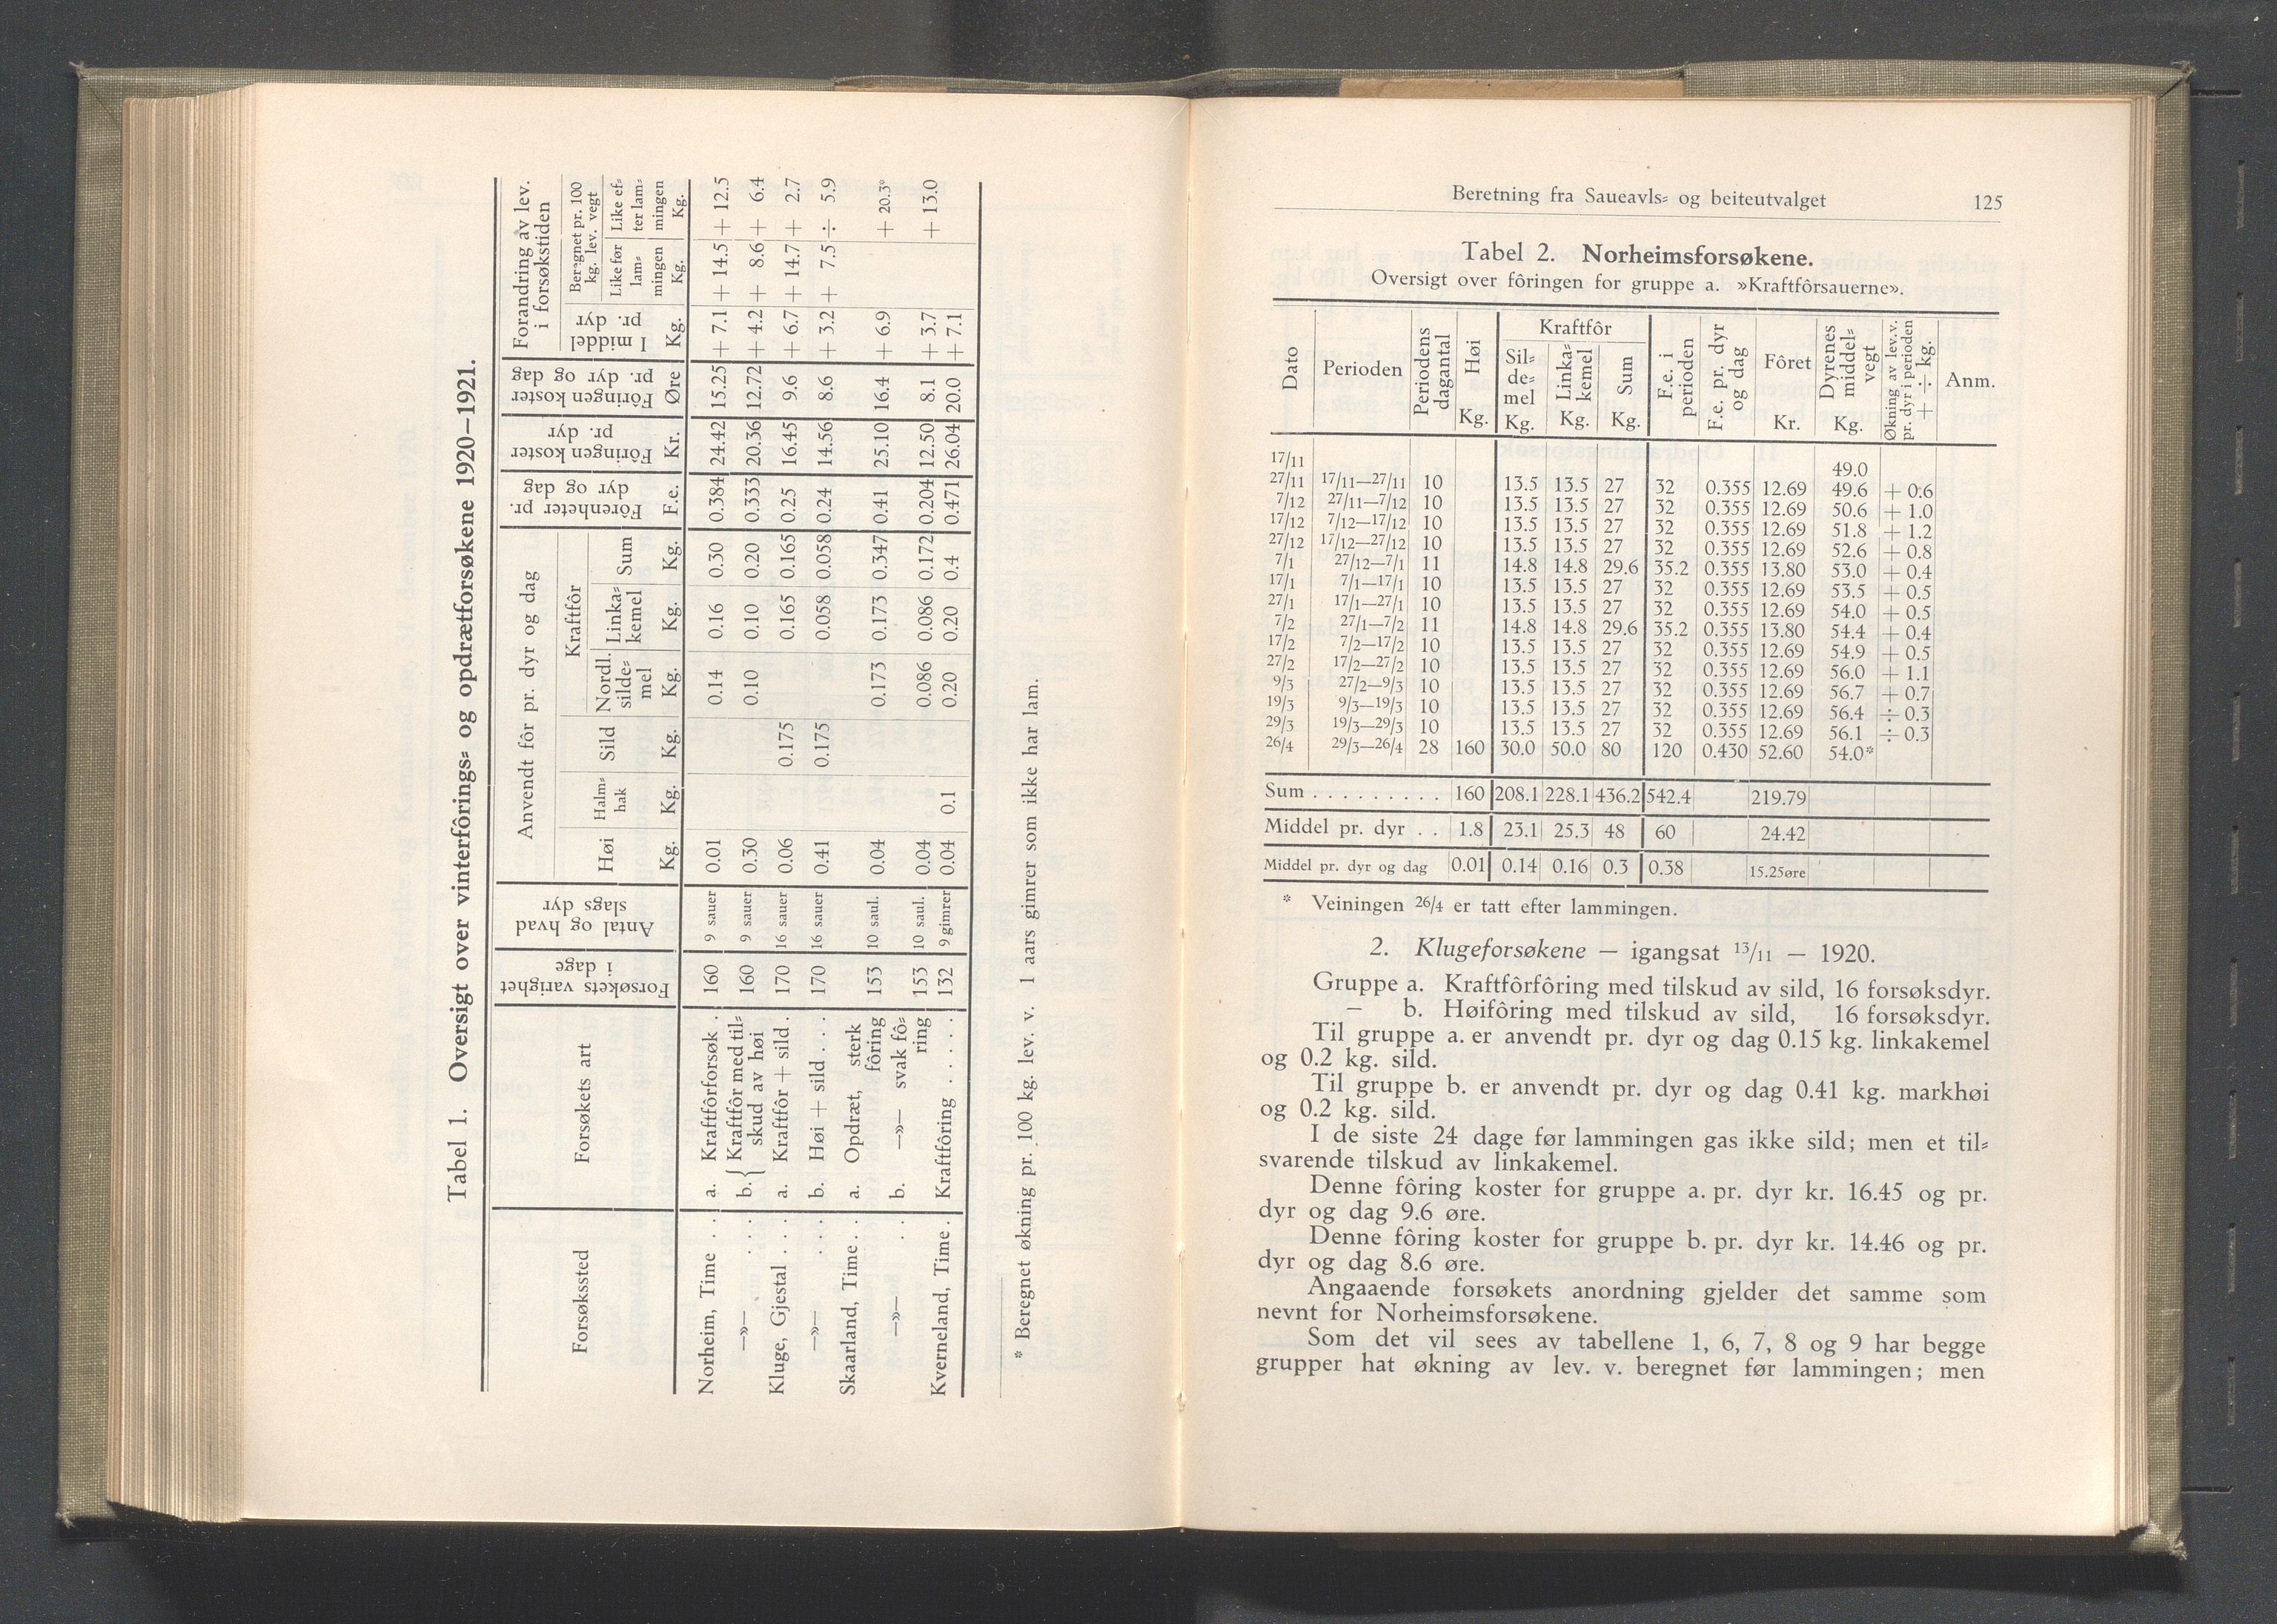 Tabel 1. Oversigt over vinterfôrings- og opdrætforsøkene 1920—1921.
Forsøkssted | Forsøkets art | Forsøkets varighet i dage | Antal og hvad slags dyr | Anvendt fôr pr. dyr og dag | Fôrenheter pr. dyr og dag | Fôringen koster pr. dyr | Fôringen koster pr. dyr og dag | Forandring av lev. i forsøkstiden
Høi | Halm-hak | Kraftfôr | I middel pr. dyr | Beregnet pr. 100 kg. lev. vegt
Sild | Nordl. silde-mel | Linka-kemel | Sum | Like før lam-mingen | Like ef-ter lam-mingen
Kg. | Kg. | Kg. | Kg. | Kg. | Kg. | F.e. | Kr. | Øre | Kg. | Kg. | Kg.
Norheim, Time . . | a. Kraftfôrforsøk . | 160 | 9 sauer | 0.01 | 0.14 | 0.16 | 0.30 | 0.384 | 24.42 | 15.25 | + 7.1 | + 14.5 | + 12.5
—»— . . . | b. { Kraftfôr med til-skud av høi | 160 | 9 sauer | 0.30 | 0.10 | 0.10 | 0.20 | 0.333 | 20.36 | 12.72 | + 4.2 | + 8.6 | + 6.4
Kluge, Gjestal . . . | a. Kraftfôr + sild . | 170 | 16 sauer | 0.06 | 0.175 | 0.165 | 0.165 | 0.25 | 16.45 | 9.6 | + 6.7 | + 14.7 | + 2.7
—»— . . . | b. Høi + sild . . . | 170 | 16 sauer | 0.41 | 0.175 | 0.058 | 0.058 | 0.24 | 14.56 | 8.6 | + 3.2 | + 7.5 | ÷ 5.9
Skaarland, Time . . | a. Opdræt, sterk fôring | 153 | 10 saul. | 0.04 | 0.173 | 0.173 | 0.347 | 0.41 | 25.10 | 16.4 | + 6.9 | + 20.3*
—»— . . | b. —»— svak fô-ring | 153 | 10 saul. | 0.04 | 0.086 | 0.086 | 0.172 | 0.204 | 12.50 | 8.1 | + 3.7 | + 13.0
Kverneland, Time . | Kraftfôring . . . . . | 132 | 9 gimrer | 0.04 | 0.1 | 0.20 | 0.20 | 0.4 | 0.471 | 26.04 | 20.0 | + 7.1
* Beregnet økning pr. 100 kg. lev. v. 1 aars gimrer som ikke har lam.
Beretning fra Saueavls- og beiteutvalget 125
Tabel 2. Norheimsforsøkene.
Oversigt over fôringen for gruppe a. »Kraftfôrsauerne».
Dato | Perioden | Periodens dagantal | Høi | Kraftfôr | F.e. i perioden | F.e. pr. dyr og dag | Fôret | Dyrenes middel-vegt | Økning av lev.v. pr. dyr i perioden + ÷ kg. | Anm.
Sil-de-mel | Linka-kemel | Sum
Kg. | Kg. | Kg. | Kg. | Kr. | Kg.
17/11 | 49.0
27/11 | 17/11—27/11 | 10 | 13.5 | 13.5 | 27 | 32 | 0.355 | 12.69 | 49.6 | + 0.6
7/12 | 27/11—7/12 | 10 | 13.5 | 13.5 | 27 | 32 | 0.355 | 12.69 | 50.6 | + 1.0
17/12 | 7/12—17/12 | 10 | 13.5 | 13.5 | 27 | 32 | 0.355 | 12.69 | 51.8 | + 1.2
27/12 | 17/12—27/12 | 10 | 13.5 | 13.5 | 27 | 32 | 0.355 | 12.69 | 52.6 | + 0.8
7/1 | 27/12—7/1 | 11 | 14.8 | 14.8 | 29.6 | 35.2 | 0.355 | 13.80 | 53.0 | + 0.4
17/1 | 7/1—17/1 | 10 | 13.5 | 13.5 | 27 | 32 | 0.355 | 12.69 | 53.5 | + 0.5
27/1 | 17/1—27/1 | 10 | 13.5 | 13.5 | 27 | 32 | 0.355 | 12.69 | 54.0 | + 0.5
7/2 | 27/1—7/2 | 11 | 14.8 | 14.8 | 29.6 | 35.2 | 0.355 | 13.80 | 54.4 | + 0.4
17/2 | 7/2—17/2 | 10 | 13.5 | 13.5 | 27 | 32 | 0.355 | 12.69 | 54.9 | + 0.5
27/2 | 17/2—27/2 | 10 | 13.5 | 13.5 | 27 | 32 | 0.355 | 12.69 | 56.0 | + 1.1
9/3 | 27/2—9/3 | 10 | 13.5 | 13.5 | 27 | 32 | 0.355 | 12.69 | 56.7 | + 0.7
19/3 | 9/3—19/3 | 10 | 13.5 | 13.5 | 27 | 32 | 0.355 | 12.69 | 56.4 | ÷ 0.3
29/3 | 19/3—29/3 | 10 | 13.5 | 13.5 | 27 | 32 | 0.355 | 12.69 | 56.1 | ÷ 0.3
26/4 | 29/3—26/4 | 28 | 160 | 30.0 | 50.0 | 80 | 120 | 0.430 | 52.60 | 54.0*
Sum . . . . . . . . . | 160 | 208.1 | 228.1 | 436.2 | 542.4 | 219.79
Middel pr. dyr . . | 1.8 | 23.1 | 25.3 | 48 | 60 | 24.42
Middel pr. dyr og dag | 0.01 | 0.14 | 0.16 | 0.3 | 0.38 | 15.25øre
* Veiningen 26/4 er tatt efter lammingen.
2. Klugeforsøkene — igangsat 13/11 — 1920.
Gruppe a. Kraftfôrfôring med tilskud av sild, 16 forsøksdyr.
— b. Høifôring med tilskud av sild, 16 forsøksdyr.
Til gruppe a. er anvendt pr. dyr og dag 0.15 kg. linkakemel
og 0.2 kg. sild.
Til gruppe b. er anvendt pr. dyr og dag 0.41 kg. markhøi
og 0.2 kg. sild.
I de siste 24 dage før lammingen gas ikke sild; men et til-
svarende tilskud av linkakemel.
Denne fôring koster for gruppe a. pr. dyr kr. 16.45 og pr.
dyr og dag 9.6 øre.
Denne fôring koster for gruppe b. pr. dyr kr. 14.46 og pr.
dyr og dag 8.6 øre.
Angaaende forsøkets anordning gjelder det samme som
nevnt for Norheimsforsøkene.
Som det vil sees av tabellene 1, 6, 7, 8 og 9 har begge
grupper hat økning av lev. v. beregnet før lammingen; men